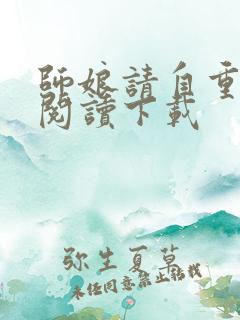 師娘請自重
閱讀下載
弥生夏草
未经同意禁止转载